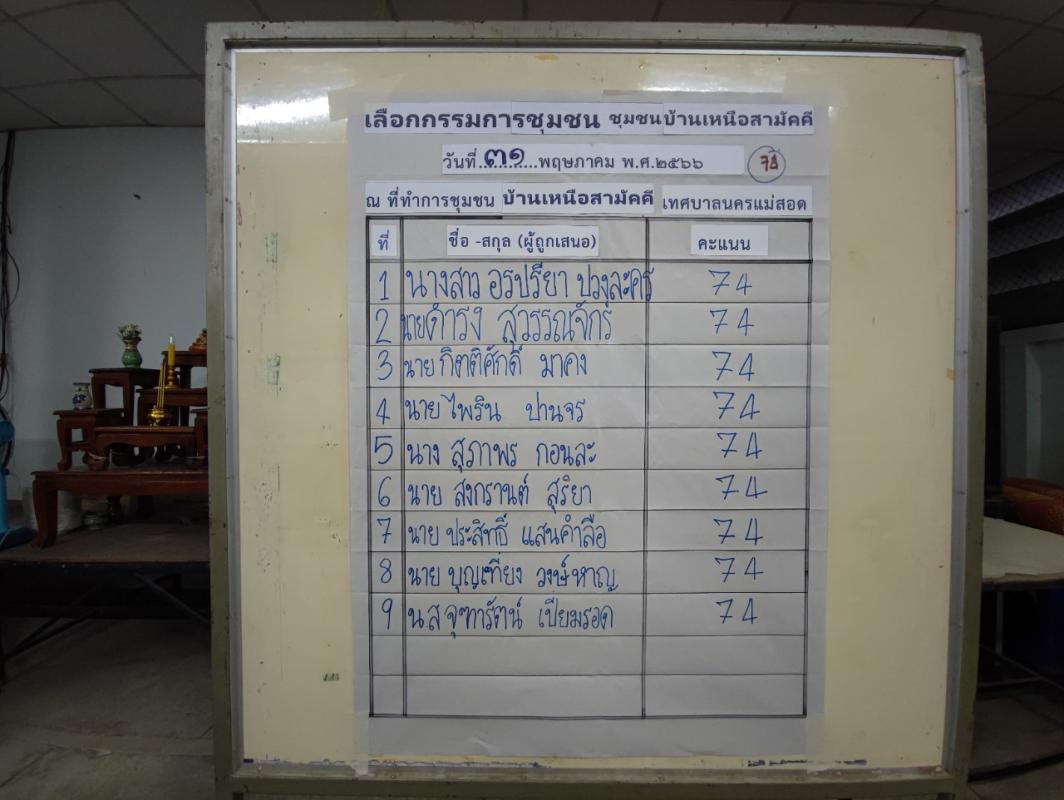 เลือกกรรมการชุมชน ชุมชนบ้านเหนือสามัคคี
วันที่.๓๑....พฤษภาคม พ.ศ.๒๕๖๖
ณ ที่ทำการชุมชน บ้านเหนือสามัคคี เทศบาลนครแม่สอด
ที่ ชื่อ -สกุล (ผู้ถูกเสนอ) คะแนน
1 นางสาว อรปรียา ปวงละคร 74
2 นายดำรง สุวรรณจักร์ 74
3 นาย กิตติศักดิ์ มาคง 74
4 นาย ไพริน ปานจร 74
5 นาง สุภาพร กอนละ 74
6 นาย สงกรานต์ สุริยา 74
7 นาย ประสิทธิ์ แสนคำลือ 74
8 นาย บุญเที่ยง วงษ์หาญ 74
9 น.ส จุฑารัตน์ เปี่ยมรอด 74